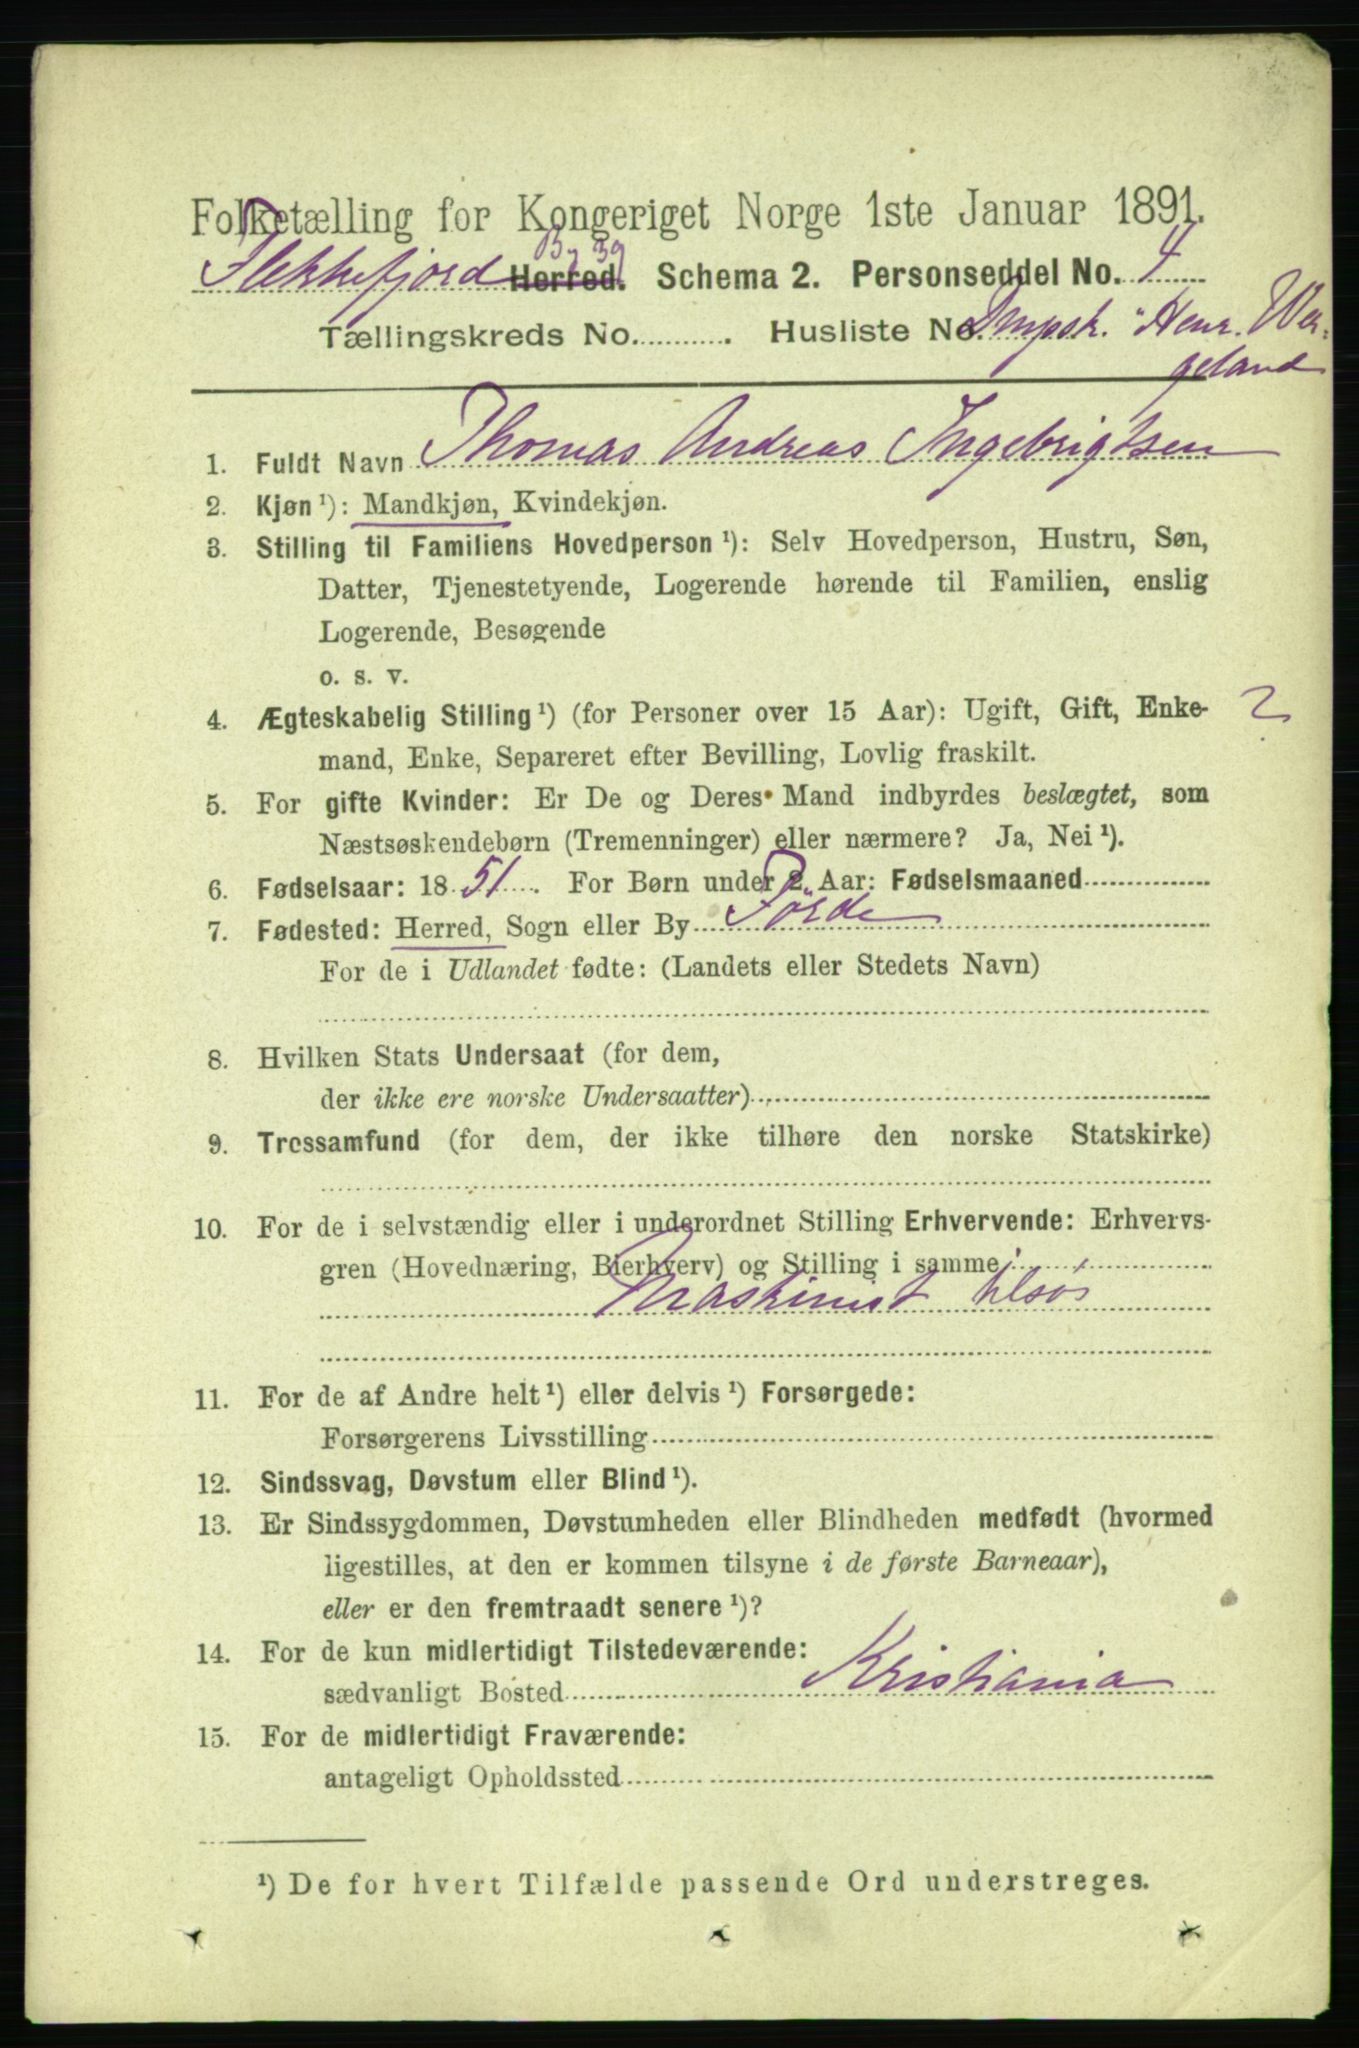 Folketælling for Kongeriget Norge 1ste Januar 1891.
By 39
Flekkefjord Herred. Schema 2. Personseddel No. 4
Tællingskreds No. Husliste No. Dmpsk. "Henr. Wer-
geland
1. Fuldt Navn Thomas Andreas Ingebrigtsen
2. Kjøn ¹): Mandkjøn, Kvindekjøn.
3. Stilling til Familiens Hovedperson ¹): Selv Hovedperson, Hustru, Søn,
Datter, Tjenestetyende, Logerende hørende til Familien, enslig
Logerende, Besøgende
o. s. v.
4. Ægteskabelig Stilling ¹) (for Personer over 15 Aar): Ugift, Gift, Enke- ?
mand, Enke, Separeret efter Bevilling, Lovlig fraskilt.
5. For gifte Kvinder: Er De og Deres Mand indbyrdes beslægtet, som
Næstsøskendebørn (Tremenninger) eller nærmere? Ja, Nei ¹).
6. Fødselsaar: 1851. For Børn under 2 Aar: Fødselsmaaned
7. Fødested: Herred, Sogn eller By Förde
For de i Udlandet fødte: (Landets eller Stedets Navn)
8. Hvilken Stats Undersaat (for dem,
der ikke ere norske Undersaatter)
9. Trossamfund (for dem, der ikke tilhøre den norske Statskirke)
10. For de i selvstændig eller i underordnet Stilling Erhvervende: Erhvervs-
gren (Hovednæring, Bierhverv) og Stilling i samme
Maskinist tilsös
11. For de af Andre helt ¹) eller delvis ¹) Forsørgede:
Forsørgerens Livsstilling
12. Sindssvag, Døvstum eller Blind ¹).
13. Er Sindssygdommen, Døvstumheden eller Blindheden medfødt (hvormed
ligestilles, at den er kommen tilsyne i de første Barneaar),
eller er den fremtraadt senere ¹)?
14. For de kun midlertidigt Tilstedeværende:
sædvanligt Bosted Kristiania
15. For de midlertidigt Fraværende:
antageligt Opholdssted
¹) De for hvert Tilfælde passende Ord understreges.